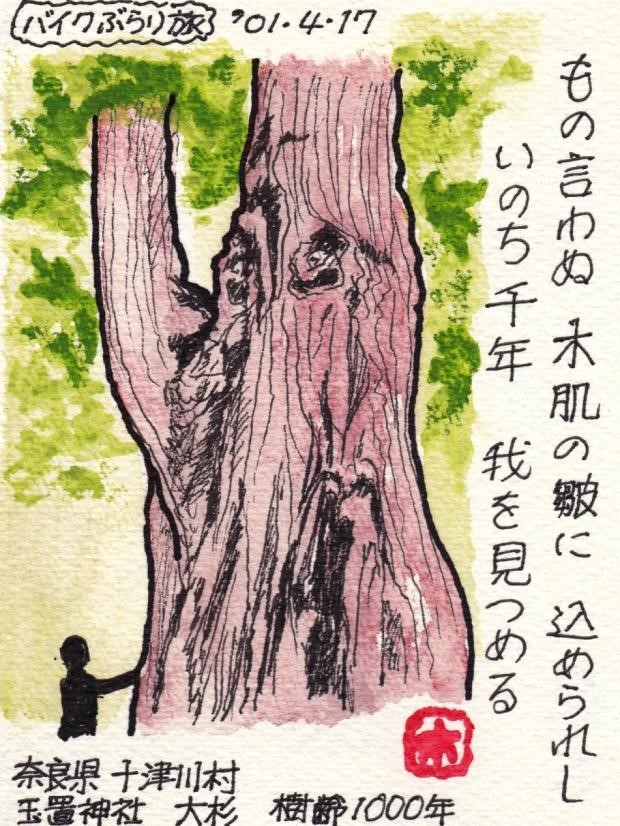 バイクぶらり旅 '01・4・17
もの言わぬ 木肌の皺に 込められし
いのち千年 我を見つめる
奈良県 十津川村
玉置神社 大杉 樹齢1000年